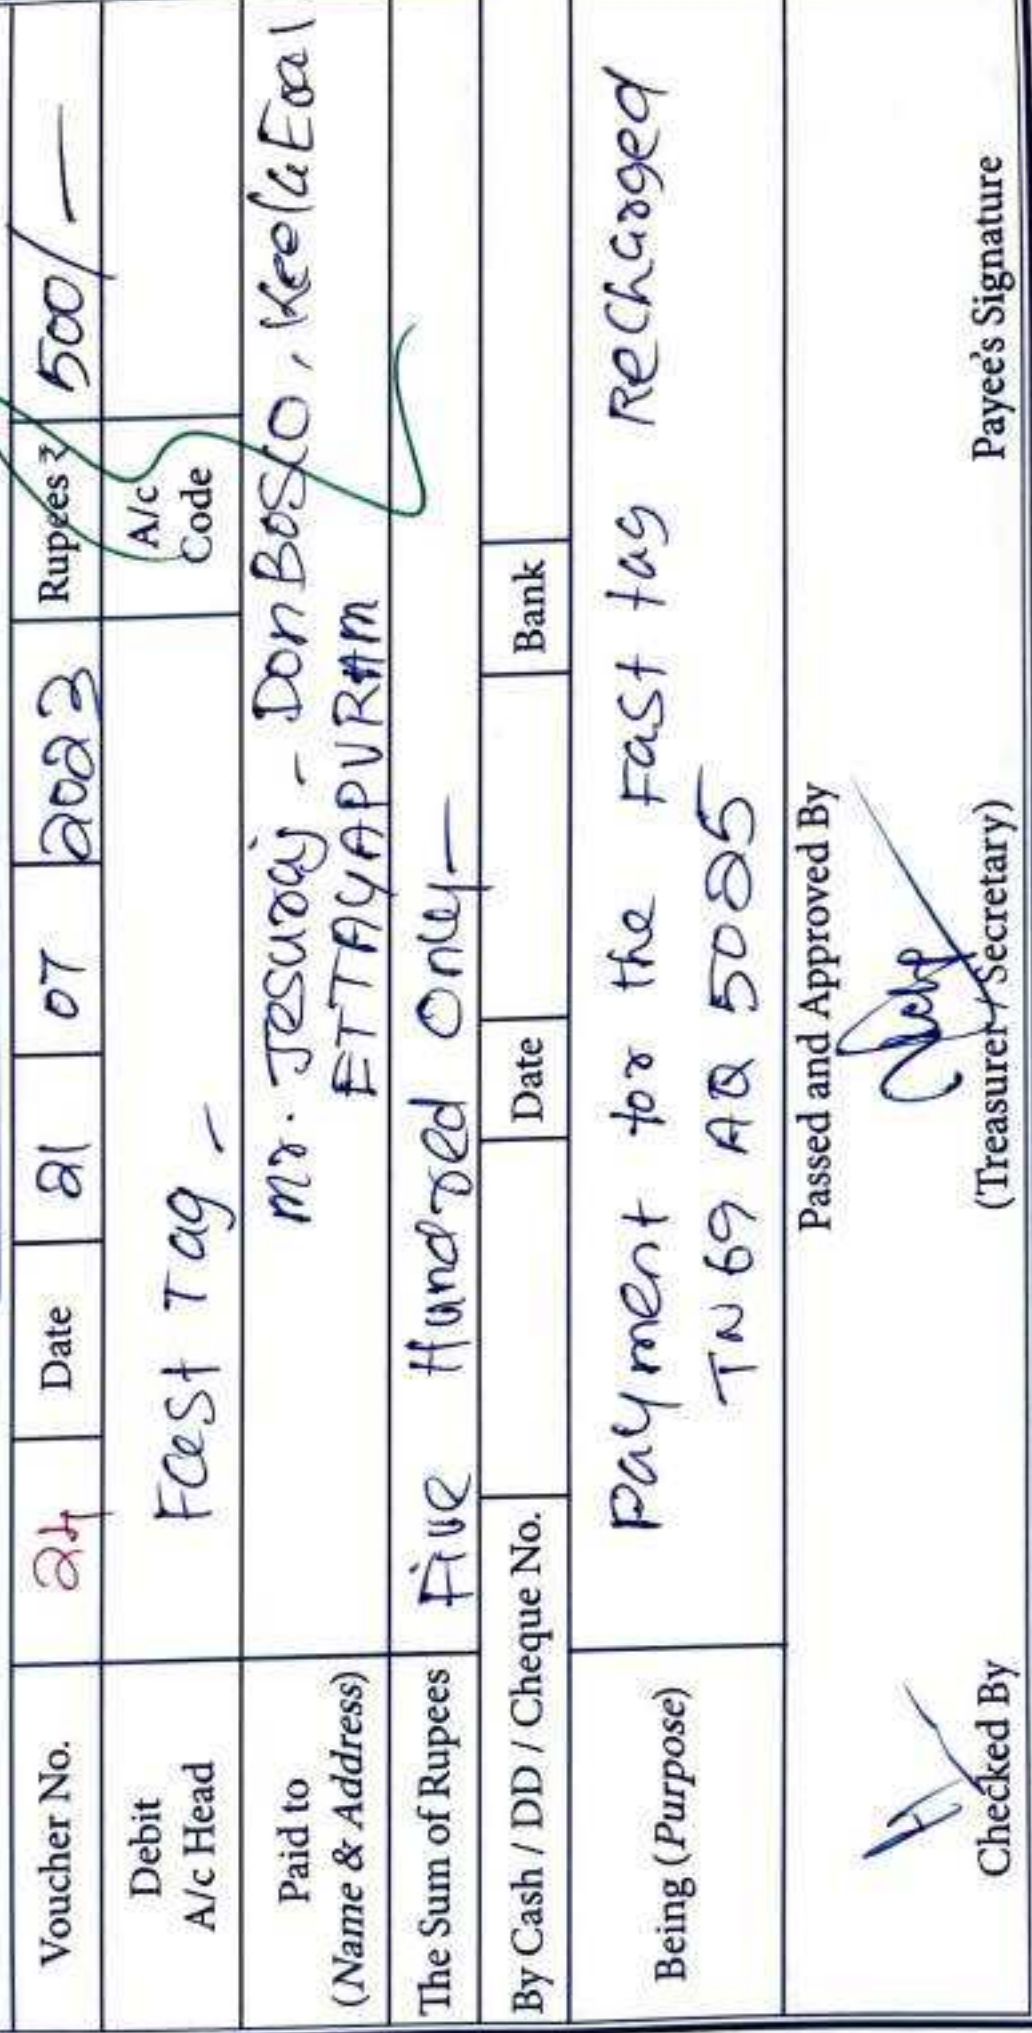 Voucher No. 24 Date 21 07 2023 Rupees ₹ 500/-
Debit A/c Head Fast Tag - A/c Code
Paid to (Name & Address) Mr. Jesuraj - Don Bosco, Keela Eral
ETTAYAPURAM
The Sum of Rupees Five Hundred Only-
By Cash / DD / Cheque No. Date Bank
Being (Purpose) Payment for the Fast tag Recharged
TN 69 AQ 5025
Passed and Approved By
Checked By (Treasurer / Secretary) Payee's Signature